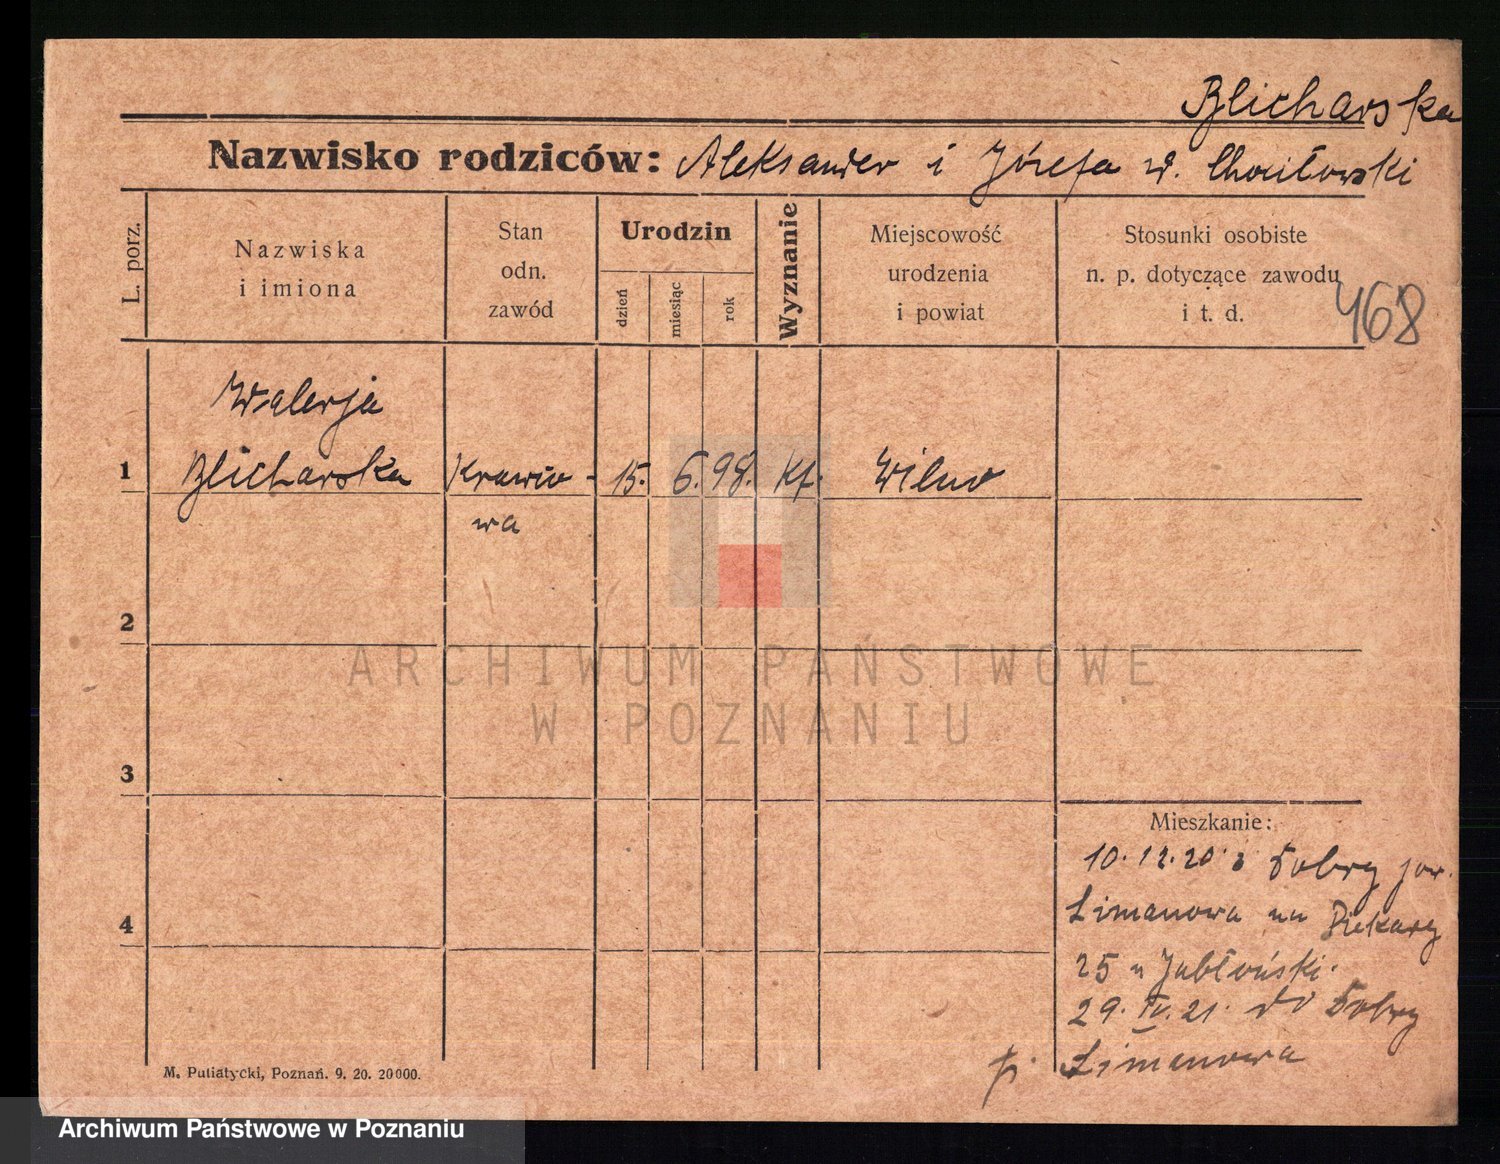 Blicharska
Nazwisko rodziców: Aleksander i Józefa z d.
L. porz.
Nazwiska
i imiona
Stan
odn.
zawód
Urodzin
dzień
miesiąc
rok
Wyznanie
Miejscowość
urodzenia
i powiat
Stosunki osobiste
n. p. dotyczące zawodu
i t. d.
468
Walerja
1 Blicharska Krawco- 15. 6. 98. Kt. Wilno
wa
2
3
4
Mieszkanie:
10.12.20 z Dobry pow.
Limanowa na Piekary
25 u Jabłoński.
29.IV.21. do Dobry
p. Limanowa
M. Putiatycki, Poznań. 9. 20. 20000.
ARCHIWUM PAŃSTWOWE
W POZNANIU
Archiwum Państwowe w Poznaniu